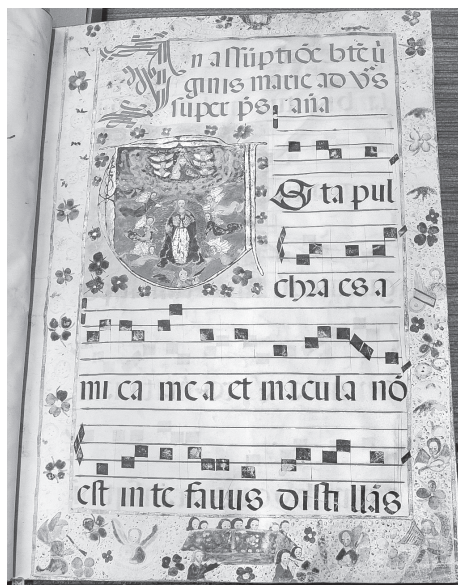 In assūptiōe btē ū
ginis marie ad v̄s
super p̄s. aña
Ota pul
chra es a
mi ca me a et macula nō
est in te fauus disti llās